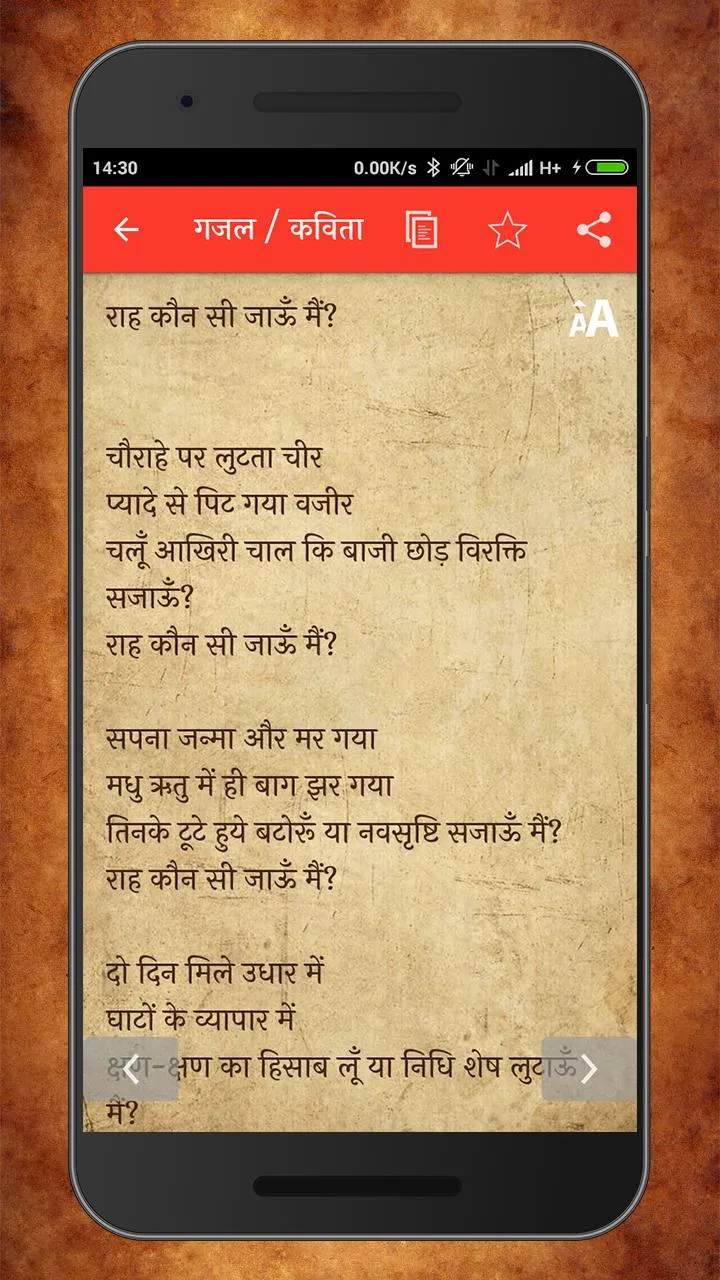 14:30 0.00K/s H+
गजल / कविता
राह कौन सी जाऊँ मैं?
AA
चौराहे पर लुटता चीर
प्यादे से पिट गया वजीर
चलूँ आखिरी चाल कि बाजी छोड़ विरक्ति
सजाऊँ?
राह कौन सी जाऊँ मैं?
सपना जन्मा और मर गया
मधु ऋतु में ही बाग झर गया
तिनके टूटे हुये बटोरूँ या नवसृष्टि सजाऊँ मैं?
राह कौन सी जाऊँ मैं?
दो दिन मिले उधार में
घाटों के व्यापार में
क्षण-क्षण का हिसाब लूँ या निधि शेष लुटाऊँ
मैं?